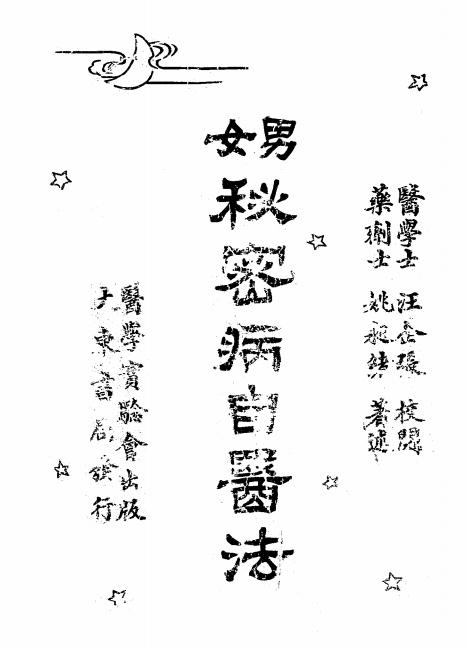 醫學士 汪企張 校閱
藥劑士 姚昶緒 著述
男女
秘密病自醫法
醫學實驗會出版
大東書局發行